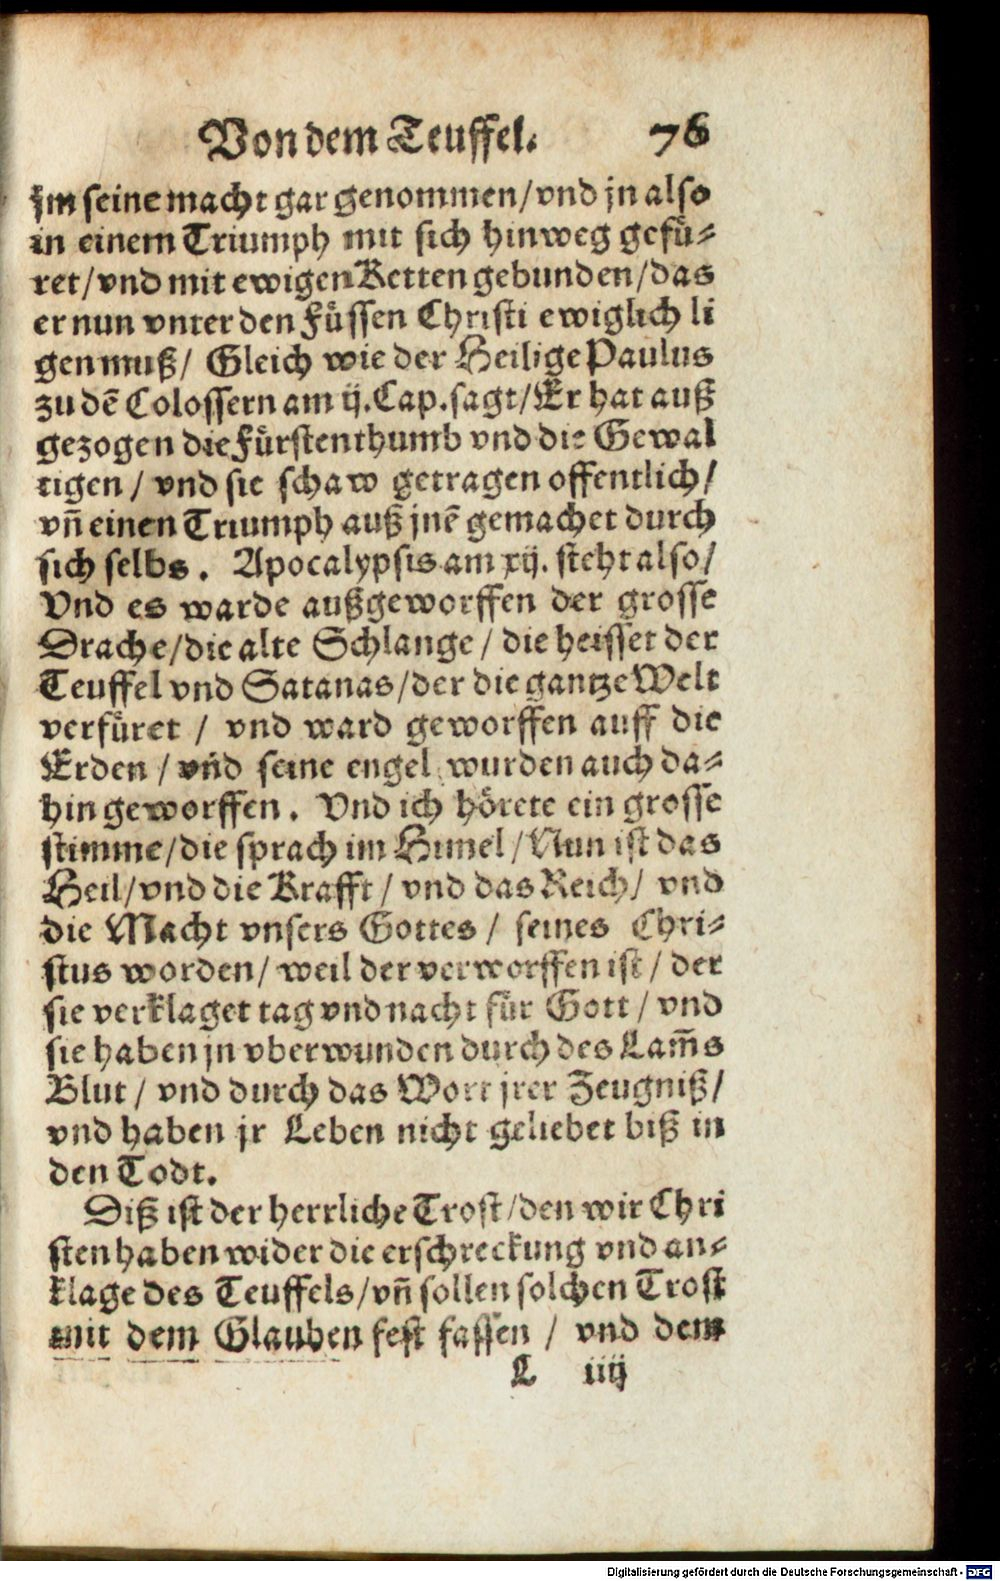 Von dem Teuffel. 76
jm seine macht gar genommen/ vnd jn also
in einem Triumph mit sich hinweg gefuͤ-
ret/ vnd mit ewigen Ketten gebunden/ das
er nun vnter den Fuͤssen Christi ewiglich li
gen muß/ Gleich wie der Heilige Paulus
zu dē Colossern am ij. Cap. sagt/ Er hat auß
gezogen die Fuͤrstenthumb vnd die Gewal
tigen/ vnd sie schaw getragen offentlich/
vn̄ einen Triumph auß jnē gemachet durch
sich selbs. Apocalypsis am xij. steht also/
Vnd es warde außgeworffen der grosse
Drache/ die alte Schlange/ die heisset der
Teuffel vnd Satanas/ der die gantze Welt
verfuͤret/ vnd ward geworffen auff die
Erden/ vnd seine engel wurden auch da-
hin geworffen. Vnd ich hoͤrete ein grosse
stimme/ die sprach im Himel/ Nun ist das
Heil/ vnd die Krafft/ vnd das Reich/ vnd
die Macht vnsers Gottes/ seines Chri-
stus worden/ weil der verworffen ist/ der
sie verklaget tag vnd nacht fuͤr Gott/ vnd
sie haben jn vberwunden durch des Lam̄s
Blut/ vnd durch das Wort jrer Zeugniß/
vnd haben jr Leben nicht geliebet biß in
den Todt.
Diß ist der herrliche Trost/ den wir Chri
sten haben wider die erschreckung vnd an-
klage des Teuffels/ vn̄ sollen solchen Trost
mit dem Glauben fest fassen/ vnd dem
L iiij
Digitalisierung gefördert durch die Deutsche Forschungsgemeinschaft - DFG